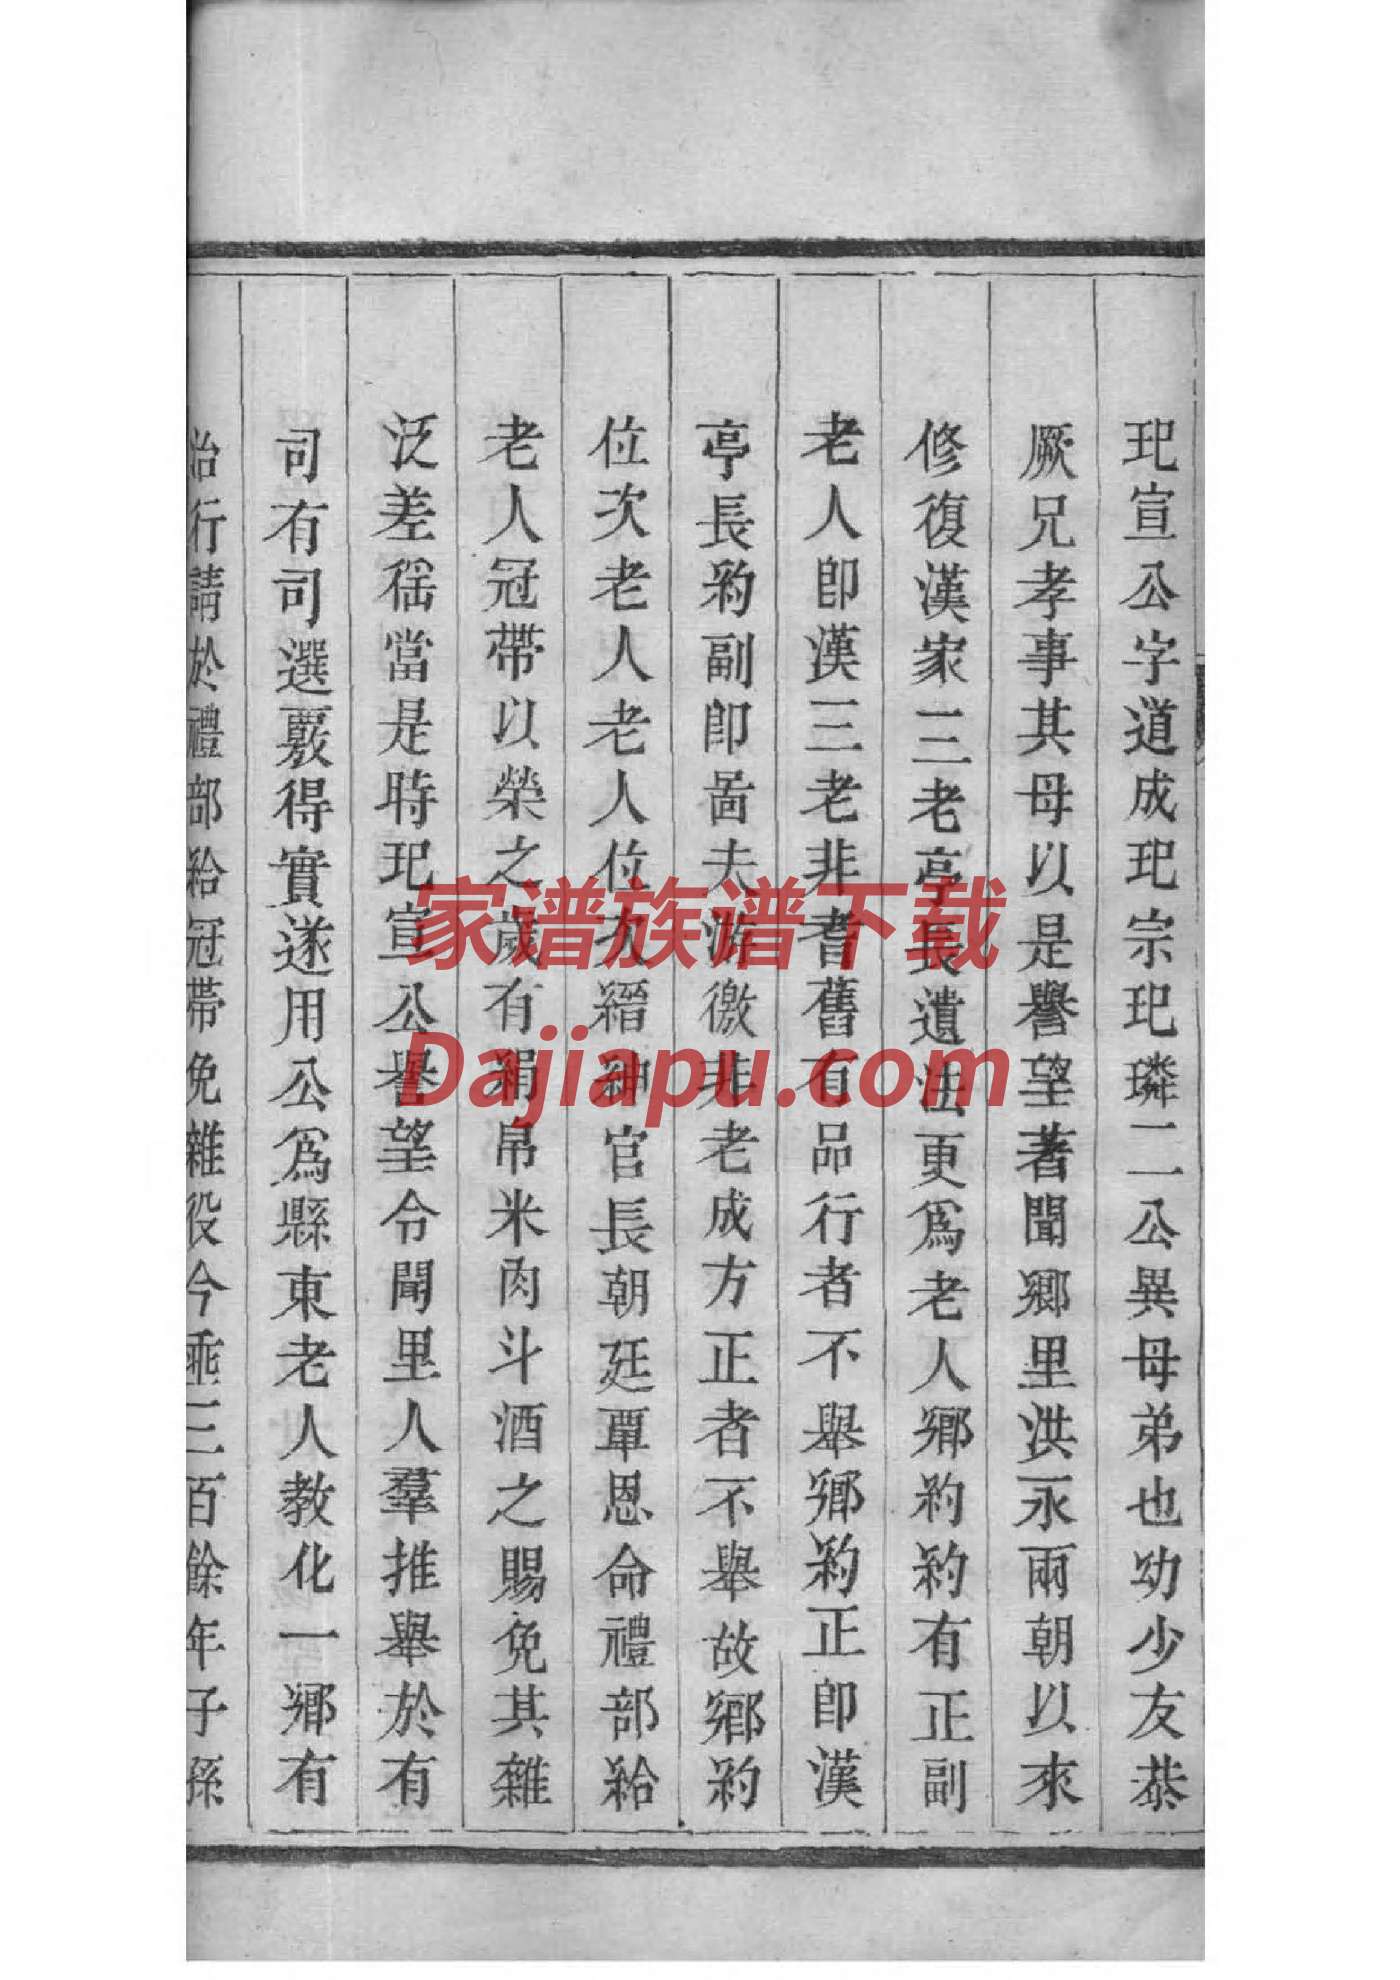 玘宣公字道成玘宗玘璘二公異母弟也幼少友恭
厥兄孝事其母以是譽望著聞鄉里洪永兩朝以來
修復漢家三老亭長遺法更爲老人鄉約約有正副
老人卽漢三老非耆舊有品行者不舉鄉約正卽漢
亭長約副卽嗇夫游徼非老成方正者不舉故鄉約
位次老人老人位次縉紳官長朝廷覃恩命禮部給
老人冠帶以榮之歲有絹帛米肉斗酒之賜免其雜
泛差徭當是時玘宣公譽望令聞里人羣推舉於有
司有司選覈得實遂用公爲縣東老人教化一鄉有
治行請於禮部給冠帶免雜役今垂三百餘年子孫
家谱族谱下载
Dajiapu.com